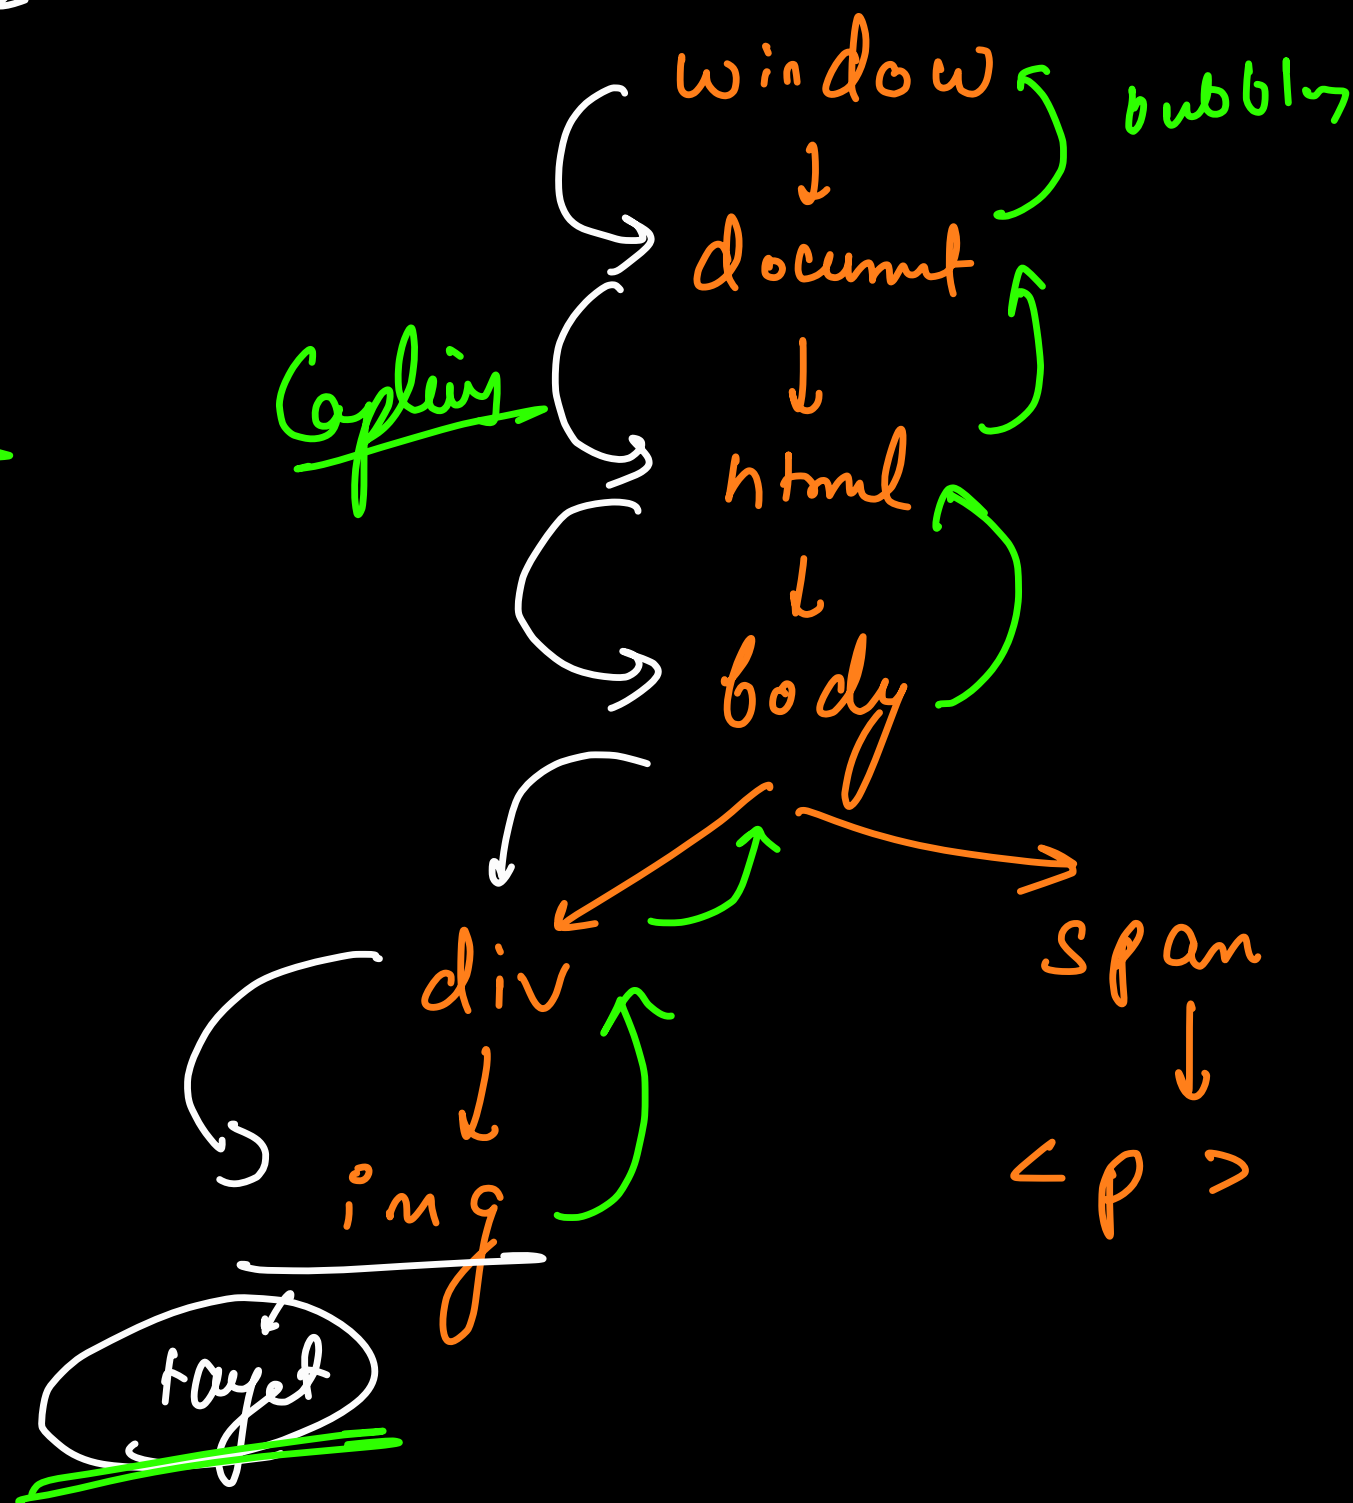 window
bubbling
document
Capturing
html
body
div
span
img
<p>
target